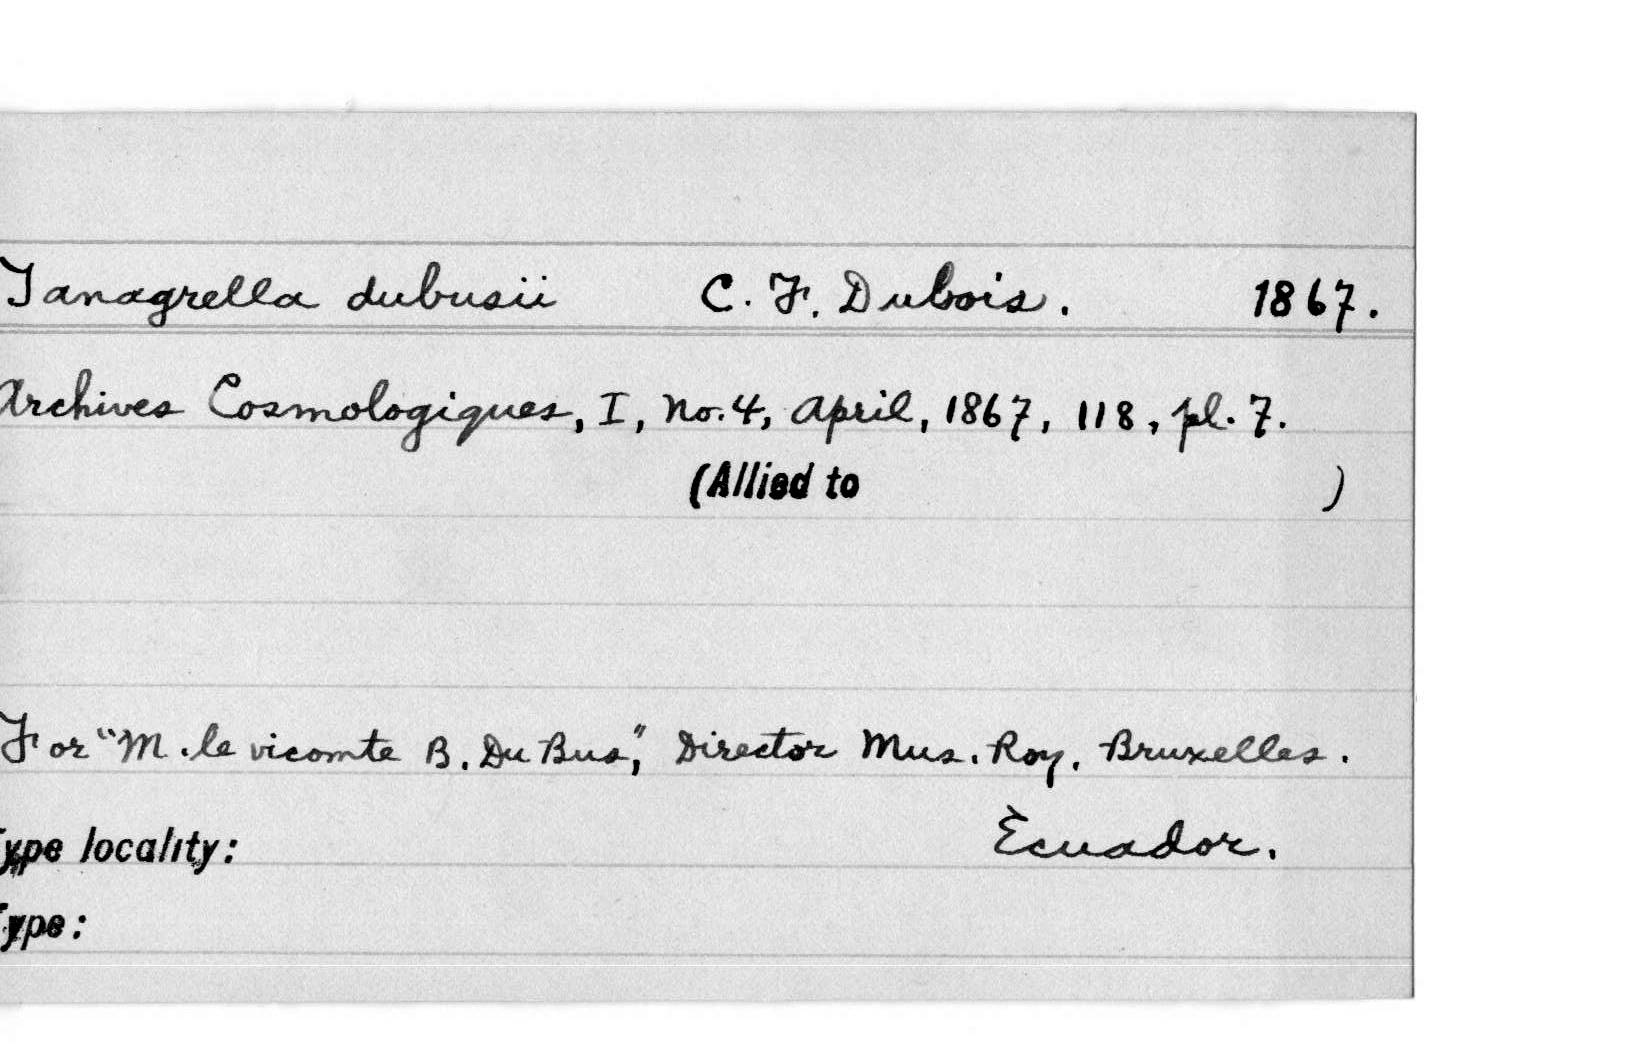 Tanagrella dubusii C. F. Dubois. 1867.
Archives Cosmologiques, I, no. 4, April, 1867, 118, pl. 7.
(Allied to )
For "M. le vicomte B. Du Bus", Director Mus. Roy. Bruxelles.
Type locality: Ècuador.
Type: